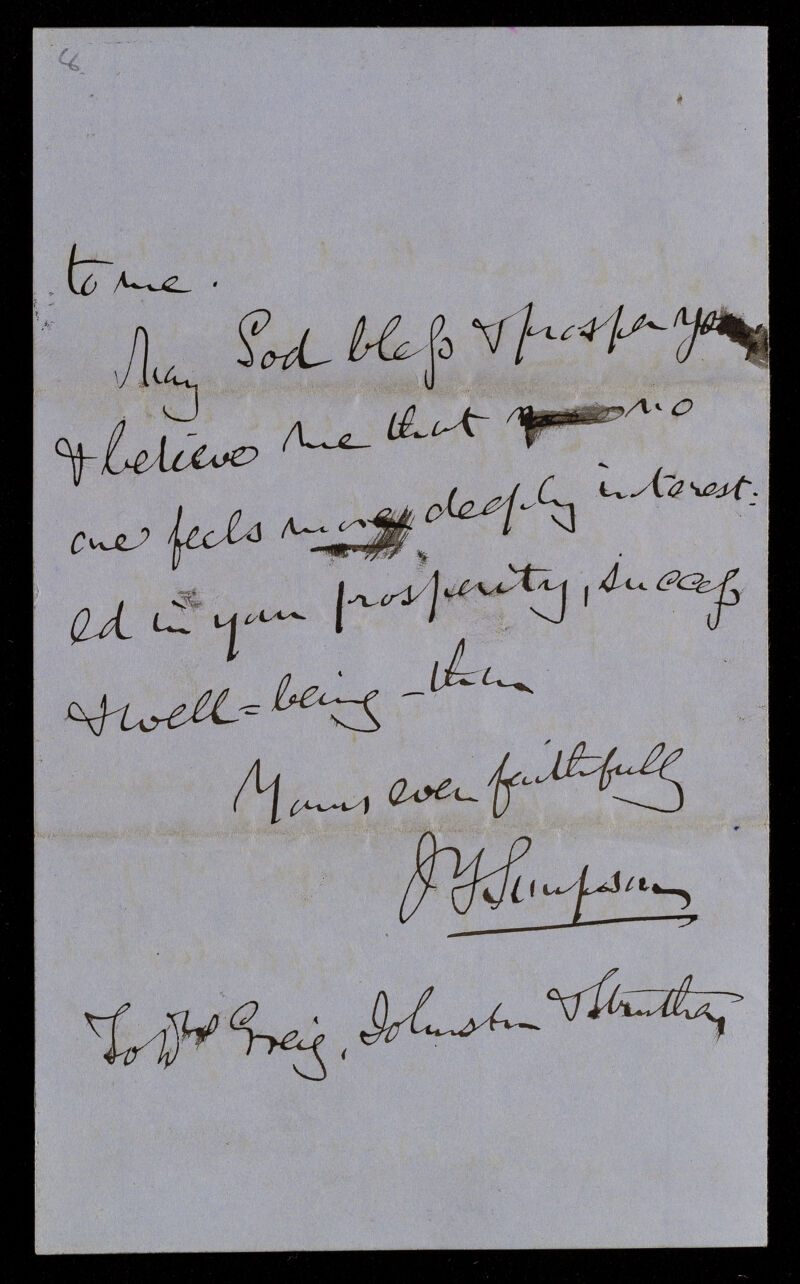 to me.
May God bless & prosper you,
& believe me that no
one feels more deeply interest:
ed in your prosperity, success
& well=being – than
Yours ever faithfully
J Y Simpson
To Drs Greig, Johnston & Struthers